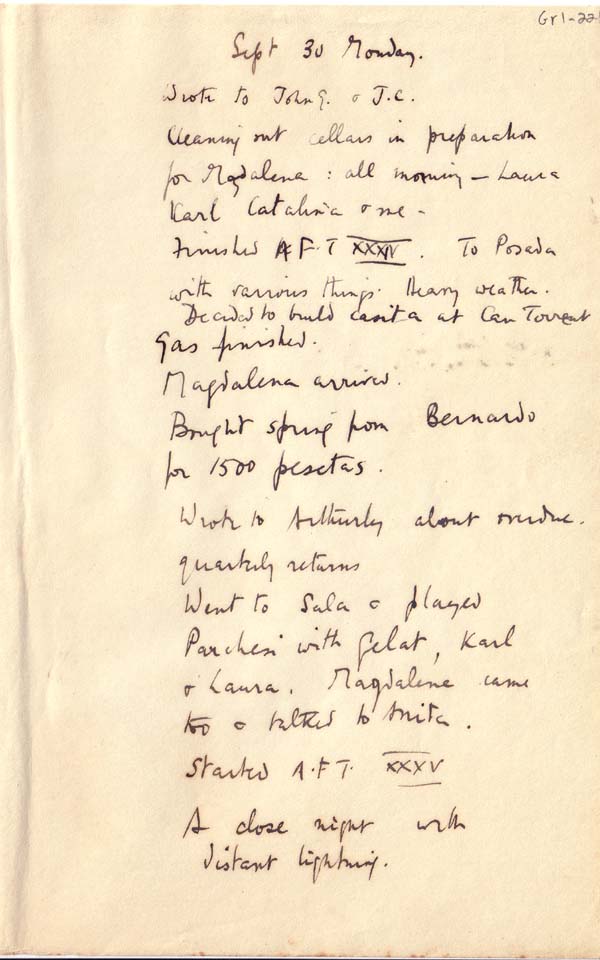 Gr1-221
Sept 30 Monday.
Wrote to John G. & J.C.
Cleaning out cellars in preparation
for Magdalena : all morning – Laura
Karl Catalina & me -
Finished A.F.T XXXIV. To Posada
with various things. Heavy weather.
Decided to build casita at Can Torrent
Gas finished.
Magdalena arrived.
Bought spring from Bernardo
for 1500 pesetas.
Wrote to about overdue.
quarterly returns
Went to Sala & played
Parchesi with Gelat, Karl
& Laura. Magdalena came
too & talked to Anita.
Started A.F.T. XXXV
A close night with
distant lightning.